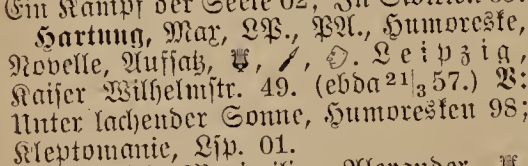 Ein Kampf der Seele 02, In
Hartung, Max, LP., PA., Humoreske,
Novelle, Aufsatz, Leipzig,
Kaiser Wilhelmstr. 49. (ebda 21|3 57.) V:
Unter lachender Sonne, Humoresken 98,
Kleptomanie, Lsp. 01.
Alexander